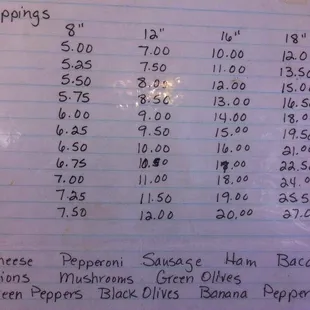 ppings
8" 12" 16" 18"
5.00 7.00 10.00 12.0
5.25 7.50 11.00 13.50
5.50 8.00 12.00 15.0
5.75 8.50 13.00 16.5
6.00 9.00 14.00 18.0
6.25 9.50 15.00 19.5
6.50 10.00 16.00 21.0
6.75 10.50 17.00 22.5
7.00 11.00 18.00 24.0
7.25 11.50 19.00 25.5
7.50 12.00 20.00 27.0
heese Pepperoni Sausage Ham Baco
ions Mushrooms Green Olives
een Peppers Black Olives Banana Pepper